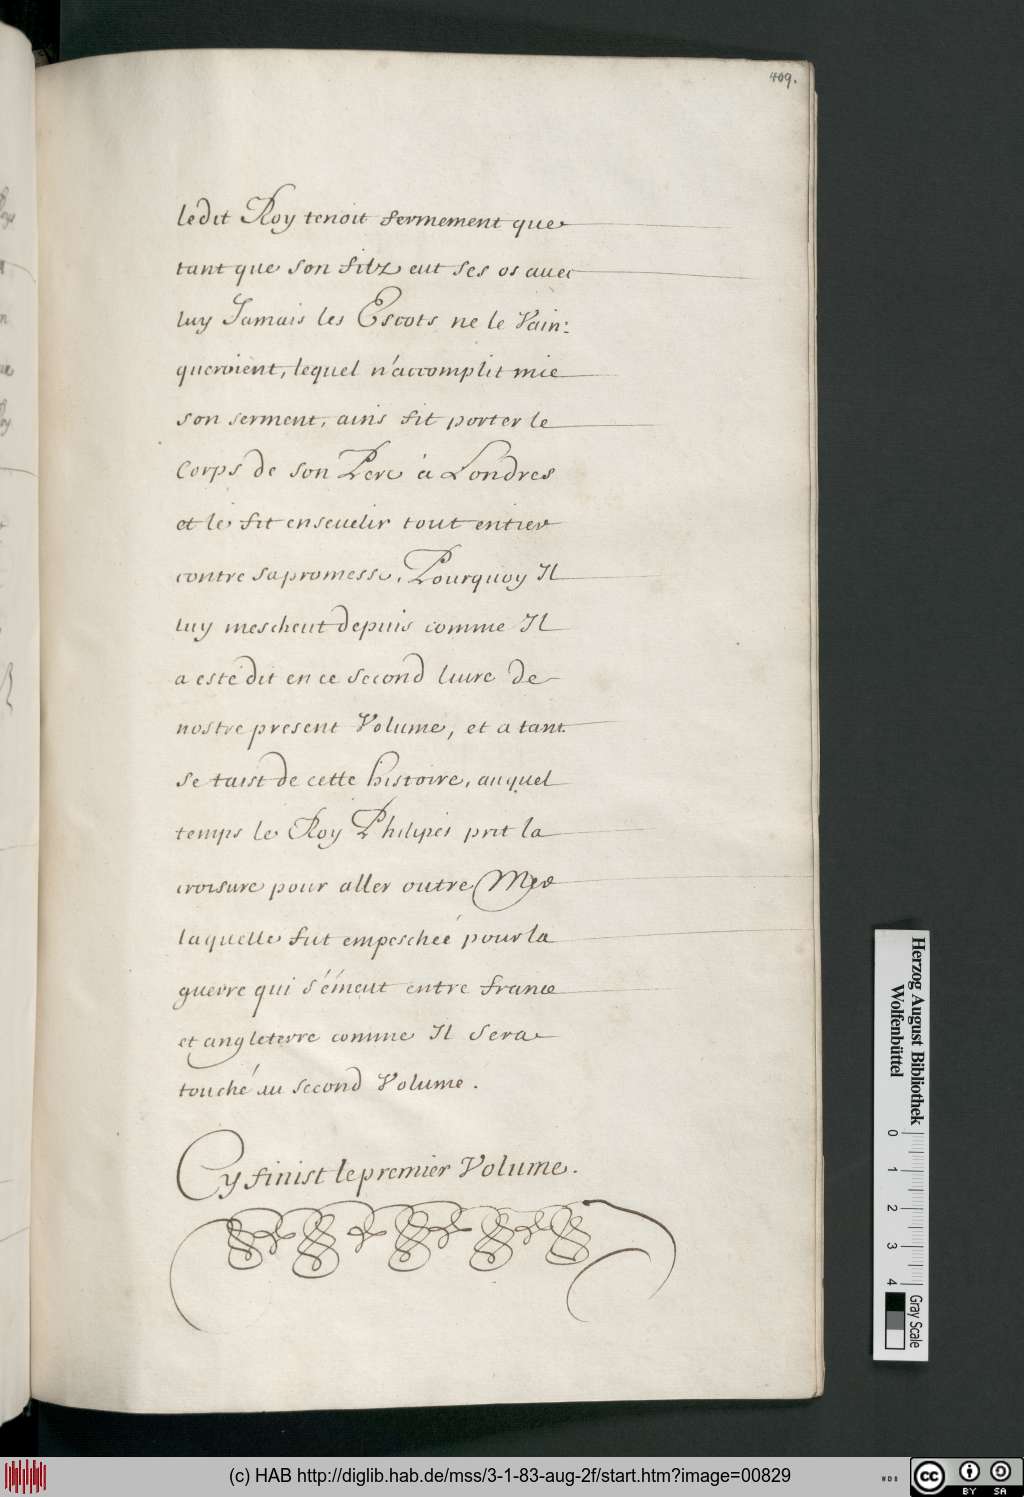 409.
ledit Roy tenoit fermement que
tant que son filz eut ses os avec
luy Jamais les Escots ne le Vain:
queroient, lequel n'accomplit mie
son serment, ains fit porter le
Corps de son Pere à Londres
et le fit ensevelir tout entier
contre sa promesse. Pourquoy Il
luy mescheut depuis comme Il
a esté dit en ce second livre de
nostre present Volume, et a tant
se taist de cette histoire, auquel
temps le Roy Philipes prit la
croisure pour aller outre Mer
laquelle fut empescheé pour la
guerre qui s'émeut entre france
et angleterre comme Il sera
touché au second Volume.
Cy finist le premier Volume.
Herzog August Bibliothek
Wolfenbüttel
0 1 2 3 4
Gray Scale
(c) HAB http://diglib.hab.de/mss/3-1-83-aug-2f/start.htm?image=00829
WDB
cc BY SA